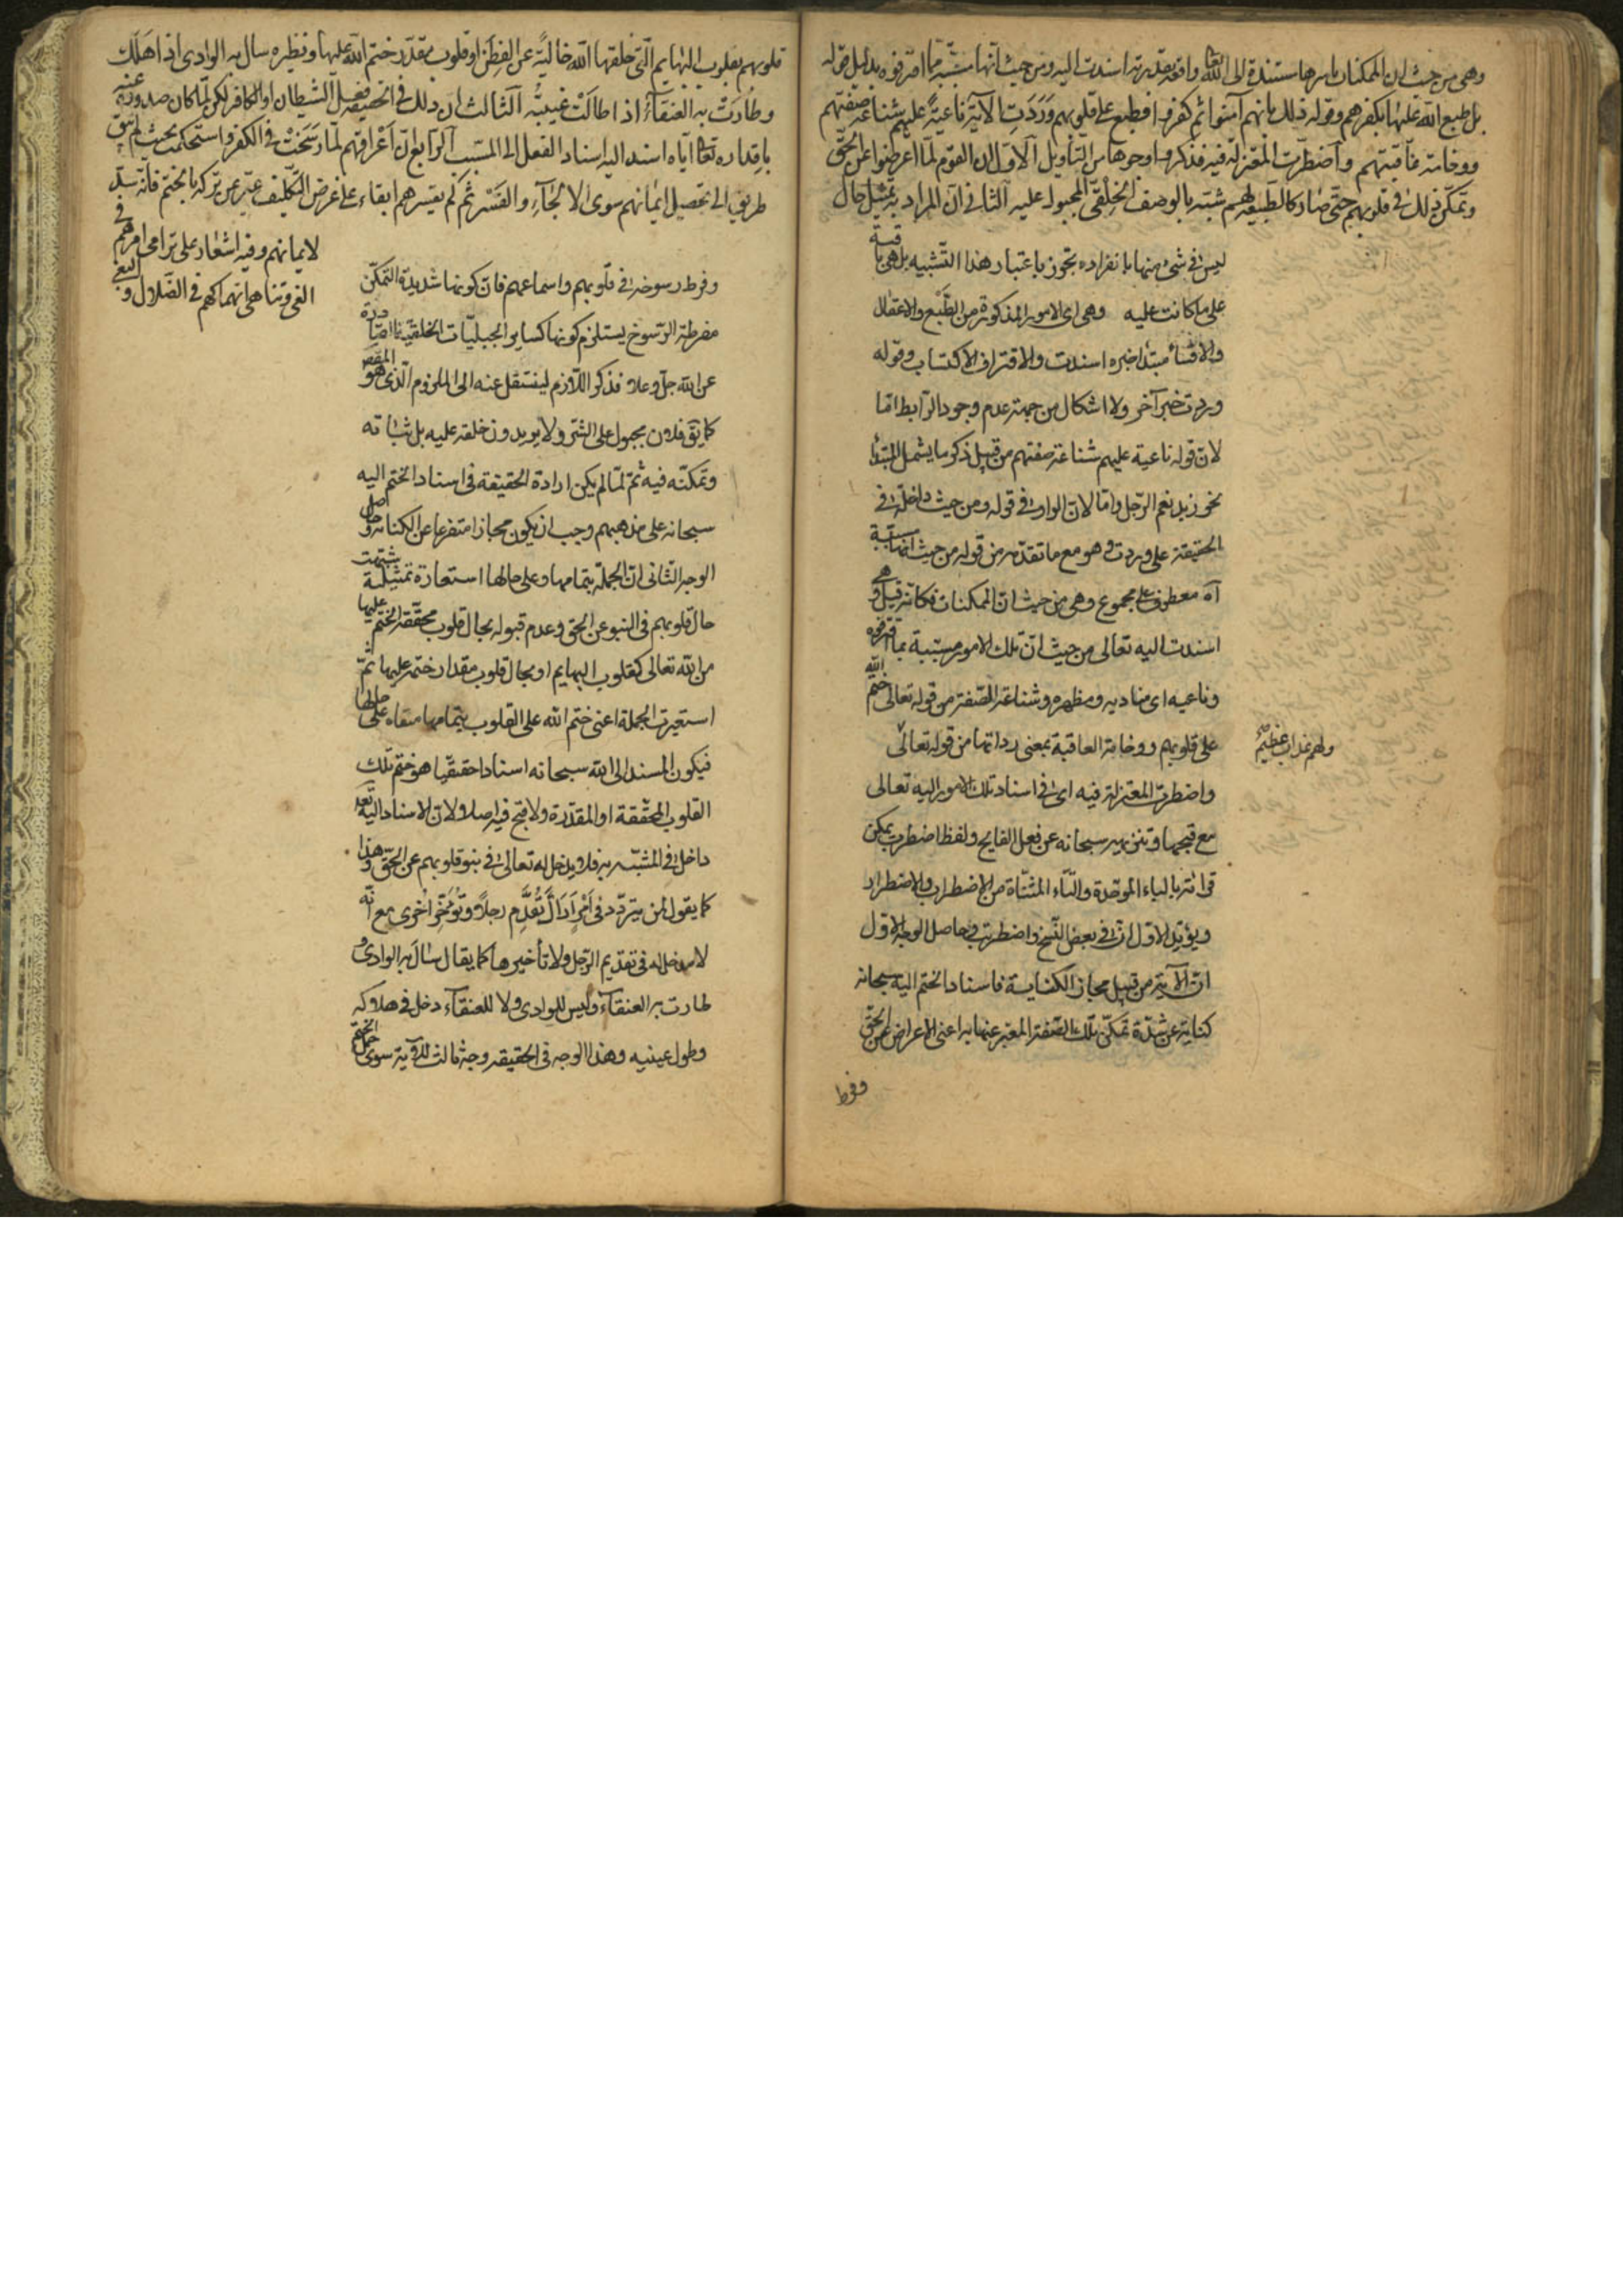 وهى من حيث ان الممكنات باسرها مستندة الى الله تعا واقعة بقدرته اسندت اليه ومن حيث انها مسببة مما اقترفوه بدليل قوله
بل طبع الله عليها بكفرهم وقوله ذلك بانهم آمنوا ثم كفروا فطبع على قلوبهم وَرَدَتِ الآية ناعيةً عليهم شناعة صفتهم
ووخامة عاقبتهم واضطربت المعتزلة فيه فذكروا وجوها من التأويل الاول ان القوم لمّا اعرضوا عن الحق
وتمكن ذلك فى قلوبهم حتى صار كالطبيعة لهم شبه بالوصف الخِلْقى المجبول عليه الثانى ان المراد به تمثيل حال
ليس فى شئ منها بانفراده تجوز باعتبار هذا التشبيه بل هى باقية
على ما كانت عليه وهى اى الامور المذكورة من الطَّبْع والاغفال
والاقساء مبتدا خبره اسندت والاقتراف الاكتساب وقوله
وردت خبر آخر ولا اشكال من جهة عدم وجود الرابط امّا
لان قوله ناعية عليهم شناعة صفتهم من قبيل ذكر ما يشمل المبتدا
نحو زيد نعم الرجل واما لان الواو فى قوله ومن حيث داخلة فى
الحقيقة على وردت وهو مع ما تقدمه من قوله من حيث انها مسببة
آه معطوف على مجموع وهى من حيث ان الممكنات فكانه قيل وهى
اسندت اليه تعالى من حيث ان تلك الامور مسببة بما اقترفوه
وناعيه اى مناديه ومظهره وشناعة الصفة من قوله تعالى ختم الله
على قلوبهم ووخامة العاقبة بمعنى رداتها من قوله تعالى
ولهم عذاب عظيم
واضطربت المعتزلة فيه اى فى اسناد تلك الامور اليه تعالى
مع قبحها وتنزيهه سبحانه عن فعل القبايح ولفظ اضطربت يمكن
قرائته بالباء الموحدة والتاء المثناة من الاضطراب والاضطرار
ويؤيد الاول ان فى بعض النسخ واضطربت وحاصل الوجه الاول
ان الآية من قبيل مجاز الكناية فاسناد الختم اليه سبحانه
كناية عن شدة تمكن تلك الصفة المعبر عنها به اعنى الاعراض عن الحق
وفرط
قلوبهم بقلوب البهايم الّتى خلقها الله خاليةً عن الفِطَن او قلوب مقدّر ختم الله عليها ونظيره سال به الوادى اذا هَلَك
وطارَتْ به العنقآءُ اذا طالَتْ غيبتُه الثالث ان ذلك فى الحقيقة فعل الشيطان او الكافر لكن لمّا كان صدوره عنه
باقداره تعا ايّاه اسند اليه اسناد الفعل الى المسبّب الرابع ان اَعْراقهم لمّا رسَخَتْ فى الكفر واستحكمت بحيث لم يبق
طريق الى تحصيل ايمانهم سوى الالجآءِ والقَسْر ثم لم يقسرهم ابقاء على غرض التكليف عبّر عن تركه بالختم فانه سدّ
لايمانهم وفيه اشعار على ترامى امرهم فى
الغى وتناهى انهماكهم فى الضلال والبغى
وفرط رسوخه فى قلوبهم واسماعهم فان كونها شديدة التمكن
مفرطة الرسوخ يستلزم كونها كساير الجبليّات الخلقية صادرة
عن الله جل وعلا فذكر اللازم لينتقل عنه الى الملزوم الذى هو المقصود
كما يق فلان مجبول على الشر ولا يريدون خلقه عليه بل ثباته
وتمكنه فيه ثم لمّا لم يكن ارادة الحقيقة فى اسناد الختم اليه
سبحانه على مذهبهم وجب ان يكون مجازا متفرعا عن الكناية وحاصل
الوجه الثانى ان الجملة بتمامها وعلى حالها استعارة تمثيلية شبهت
حال قلوبهم فى النبو عن الحق وعدم قبوله بحال قلوب محققة الختم عليها
من الله تعالى كقلوب البهايم او بحال قلوب مقدار ختمه عليها ثم
استعيرت الجملة اعنى ختم الله على القلوب بتمامها مبقاه على حالها
فيكون المسند الى الله سبحانه اسنادا حقيقيا هو ختم تلك
القلوب المحققة او المقدّرة ولا قبح فيه اصلا ولان الاسناد اليه تعا
داخل فى المشبه به فلا يدخل له تعالى فى نبو قلوبهم عن الحق وهذا
كما يقول لمن يتردد فى اَمْرٍ اَرَاكَ تُقَدِّم رجلاً وتُوَخِّر اُخْرى مع انّه
لا مدخل له فى تقديم الرجل ولا تأخيرها كما يقال سال به الوادى و
طارت به العنقآء وليس للوادى ولا للعنقآء دخل فى هلاكه
وطول غيبته وهذا الوجه فى الحقيقه وجه ثالث للآية سوى حمل الختم